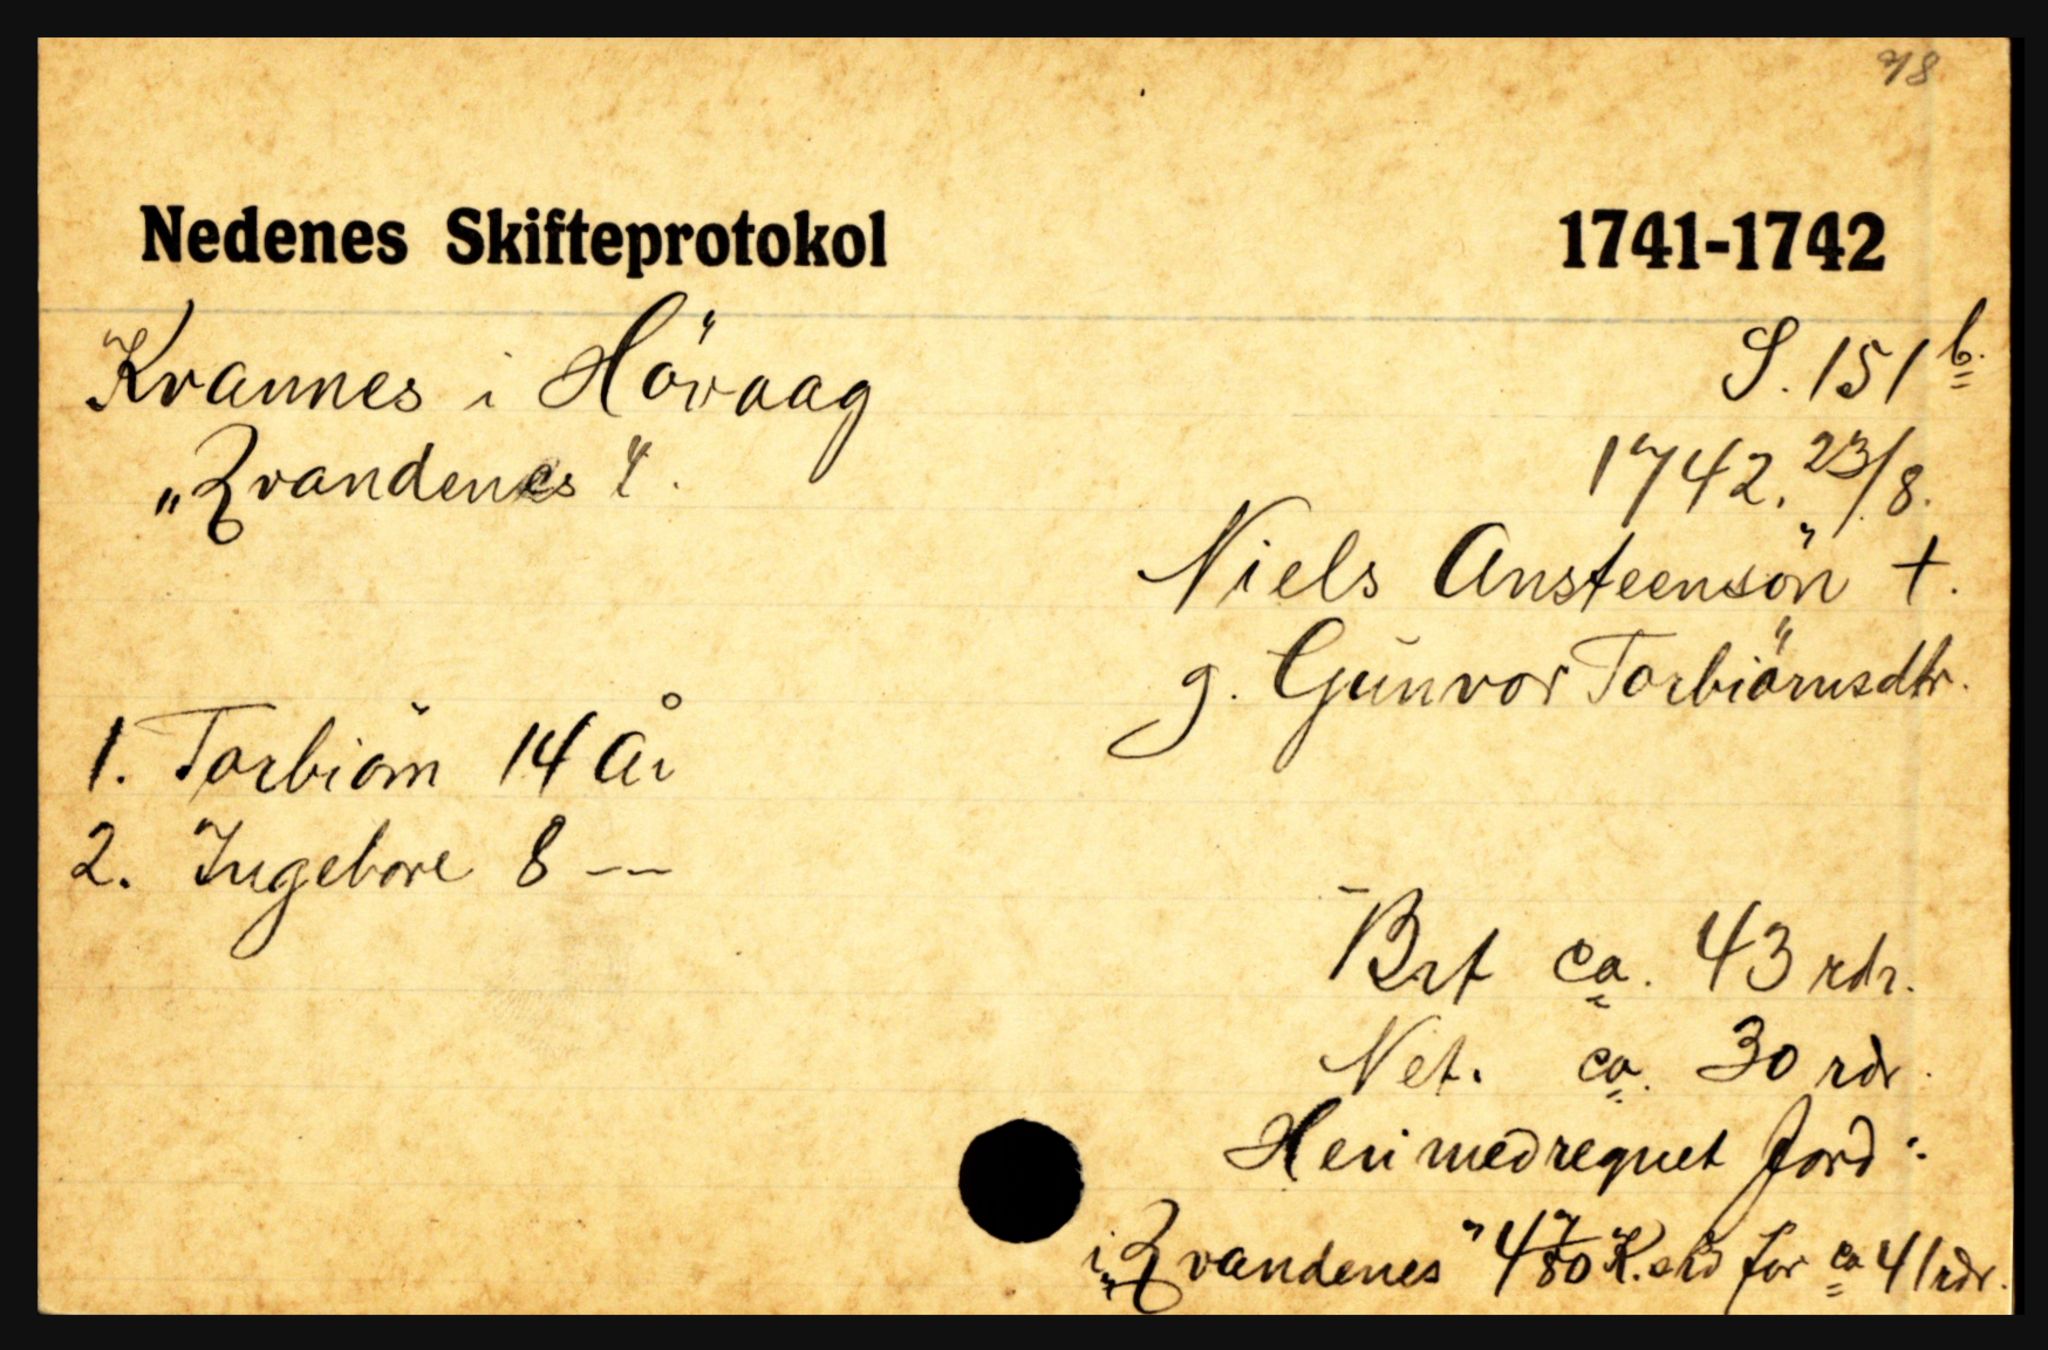 78
Nedenes Skifteprotokol 1741-1742
Krannes i Hövaag
S. 151 b.
„Qvandenes“.
1742. 23/8.
Niels Ansteensön +.
g. Gunvor Torbiörnsdtr.
1. Torbiörn 14 År
2. Ingebore 8 --
Brt ca. 43 rdr.
Net. ca. 30 rdr.
Heri medregnet Jord:
i „Qvandenes" 4 7/80 K. shd for ca 41 rdr.